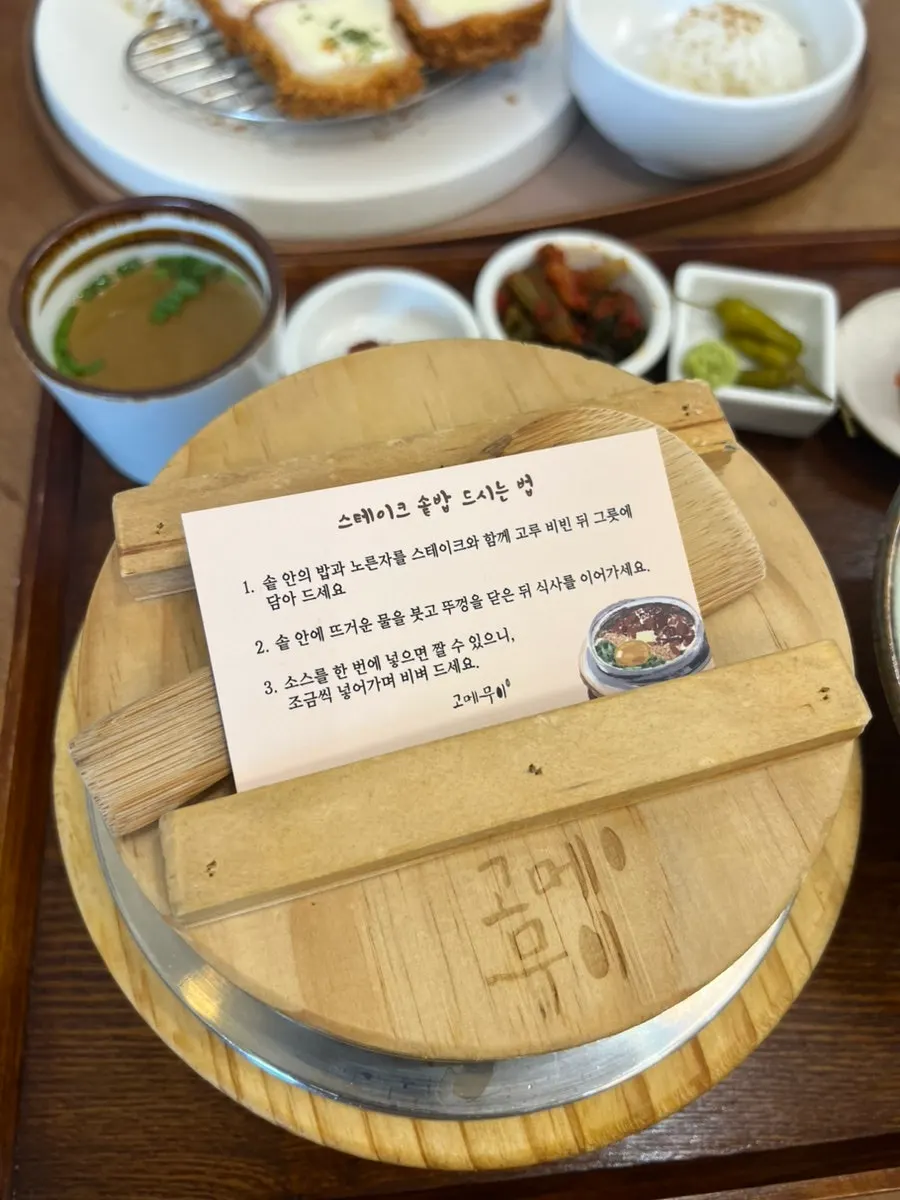 스테이크 솥밥 드시는 법
1. 솥 안의 밥과 노른자를 스테이크와 함께 고루 비빈 뒤 그릇에
담아 드세요
2. 솥 안에 뜨거운 물을 붓고 뚜껑을 닫은 뒤 식사를 이어가세요.
3. 소스를 한 번에 넣으면 짤 수 있으니,
조금씩 넣어가며 비벼 드세요.
고메무이
고메이
무이